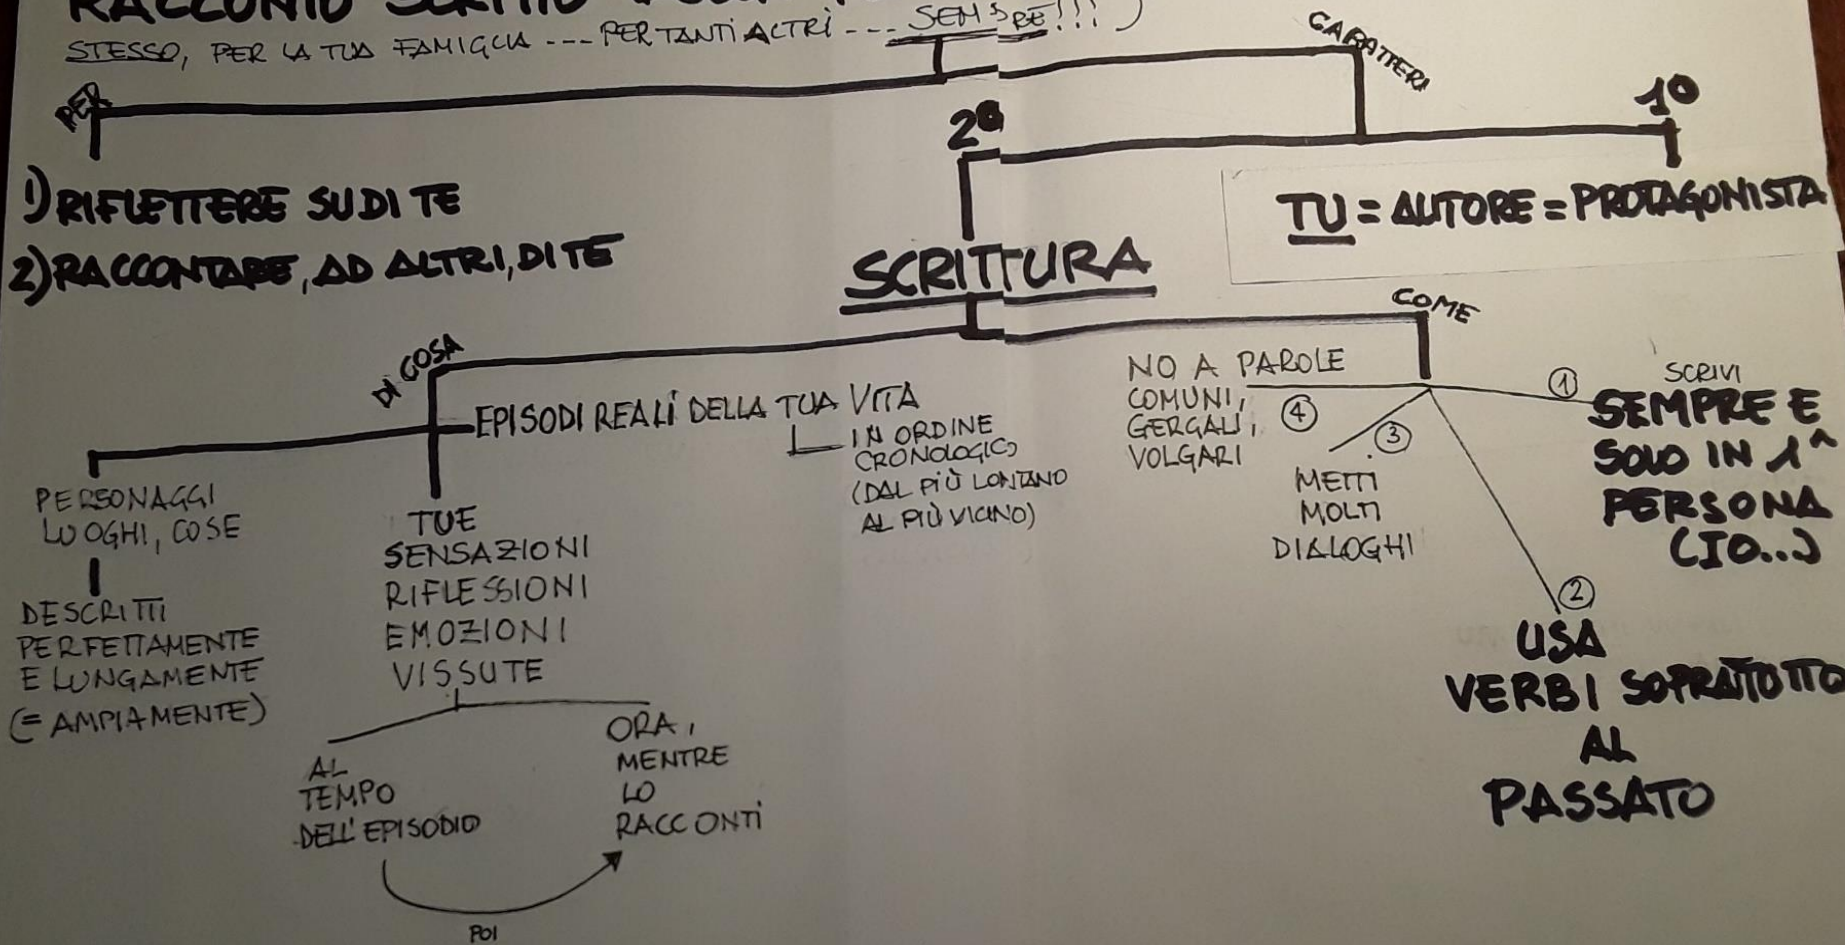 RACCONTO SCRITTO
STESSO, PER LA TUA FAMIGLIA --- PER TANTI ALTRI --- SEMPRE!!! )
PER
CARATTERI
2°
1°
1) RIFLETTERE SU DI TE
2) RACCONTARE, AD ALTRI, DI TE
TU = AUTORE = PROTAGONISTA
SCRITTURA
DI COSA
COME
EPISODI REALI DELLA TUA VITA
IN ORDINE
CRONOLOGICO
(DAL PIÙ LONTANO
AL PIÙ VICINO)
PERSONAGGI
LUOGHI, COSE
DESCRITTI
PERFETTAMENTE
E LUNGAMENTE
(= AMPIAMENTE)
TUE
SENSAZIONI
RIFLESSIONI
EMOZIONI
VISSUTE
AL
TEMPO
DELL'EPISODIO
ORA,
MENTRE
LO
RACCONTI
POI
NO A PAROLE
COMUNI,
GERGALI,
VOLGARI
4
3
METTI
MOLTI
DIALOGHI
1
SCRIVI
SEMPRE E
SOLO IN 1^
PERSONA
(IO...)
2
USA
VERBI SOPRATTUTTO
AL
PASSATO